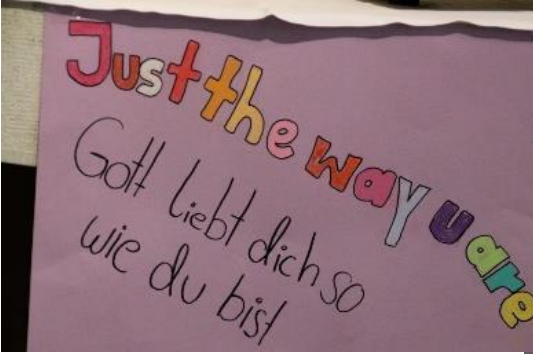 Just the way u are
Gott liebt dich so
wie du bist